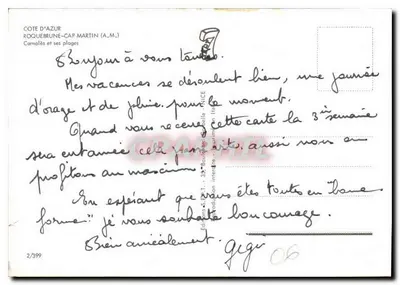 COTE D'AZUR
ROQUEBRUNE-CAP MARTIN (A.M.)
Carnolès et ses plages
Bonjour à vous toutes.
Mes vacances se déroulent bien, une journée
d'orage et de pluie pour le moment.
Quand vous recevrez cette carte la 3ème semaine
sera entamée cela passe vite, aussi nous en
profitons au maximum.
En espérant que vous êtes toutes en "bonne
forme" je vous souhaite bon courage.
Bien amicalement.
Gegi
06
2/399